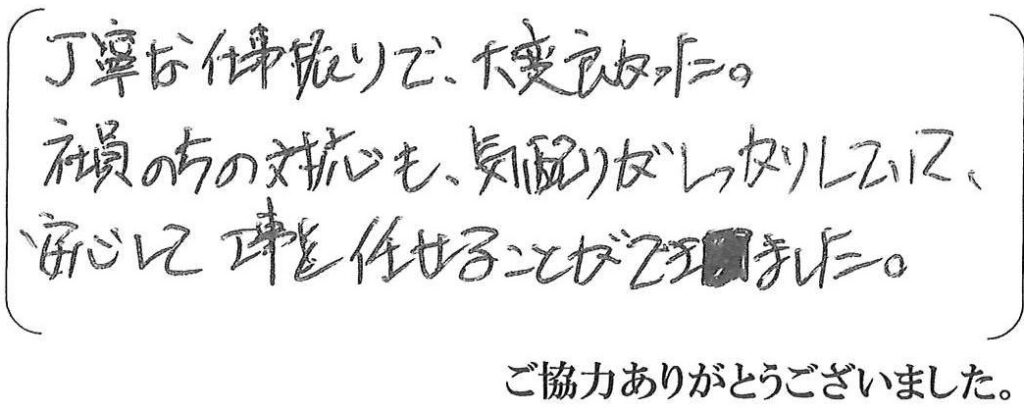 丁寧な仕事振りで、大変良かった。
社員の方の対応も、気配りがしっかりしていて、
安心して工事を任せることができました。
ご協力ありがとうございました。